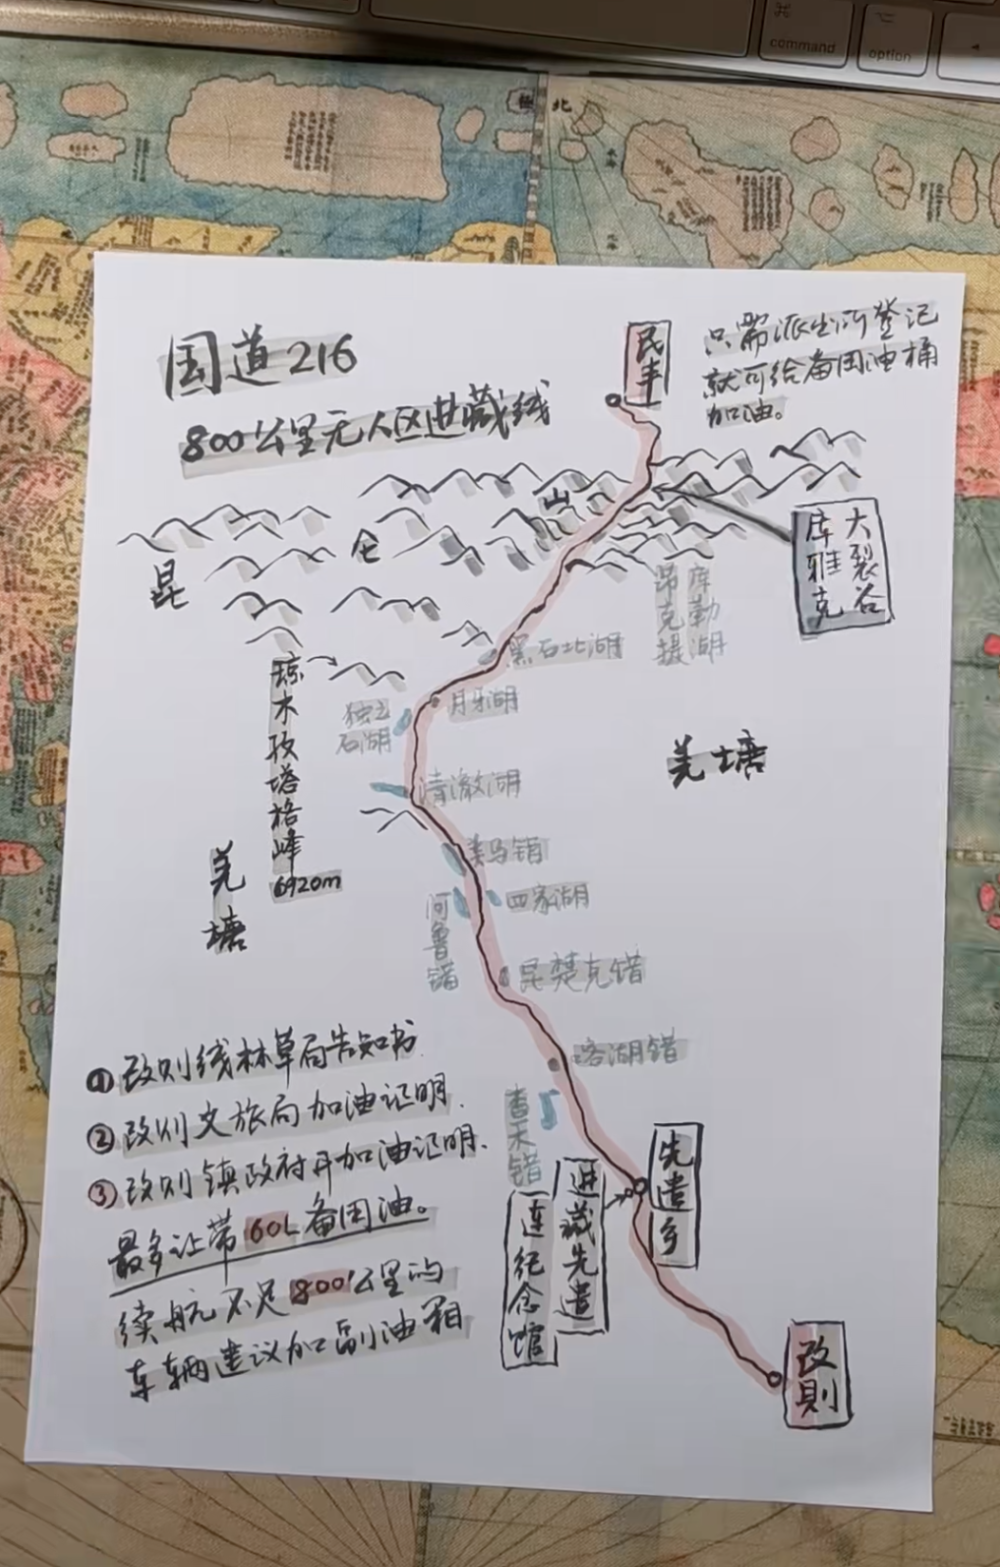 command
option
北
国道216
800公里无人区进藏线
民丰
只需派出所登记
就可给备用油桶
加油。
昆
仑
山
大裂谷
库雅克
库勒湖
昂克提
黑石北湖
月牙湖
独立
石湖
清澈湖
琼木孜塔格峰
6920m
羌塘
羌塘
美马错
四家湖
阿鲁错
昆楚克错
喀湖错
查木错
先遣乡
进藏先遣
连纪念馆
改则
①改则线林草局告知书
②改则文旅局加油证明.
③改则镇政府开加油证明.
最多让带60L备用油。
续航不足800公里的
车辆建议加副油箱